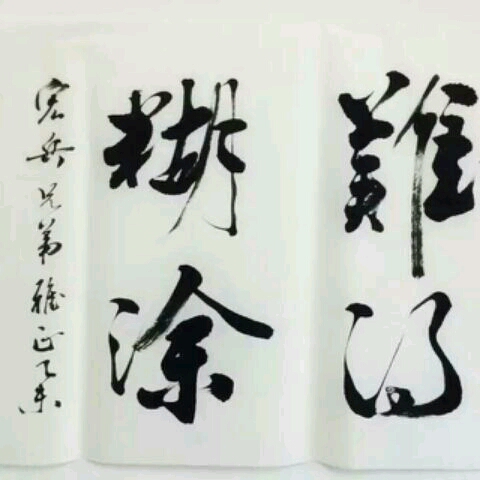 難得
糊涂
宏兵兄弟雅正乙未